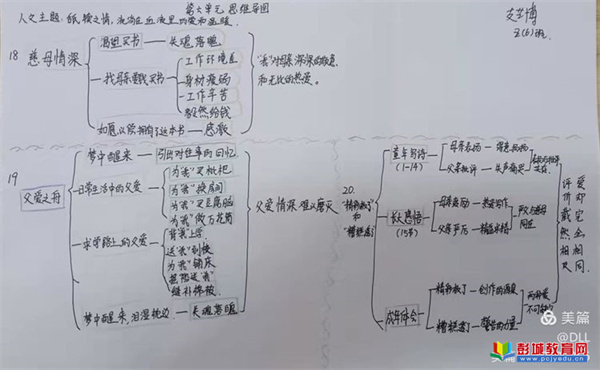 第六单元 思维导图
人文主题：舐犊之情，流淌在血液里的爱和温暖。
五(6)班
18 慈母情深
渴望买书——失魂落魄
找母亲要钱买书
工作环境差
身材瘦弱
工作辛苦
毅然给钱
如愿以偿拥有了这本书——感激
“我”对母亲深深的敬意
和无比的热爱。
19 父爱之舟
梦中醒来——引出对往事的回忆
日常生活中的父爱
为“我”买枇杷
为“我”换房间
为“我”买豆腐脑
为“我”做万花筒
求学路上的父爱
背“我”上学
送“我”到校
为“我”铺床
缝补棉被
梦中醒来，泪湿枕边——失魂落魄
父爱情深 难以磨灭
20.
“精彩极了”
和
“糟糕透了”
童年写诗
(1-14)
母亲表扬——得意扬扬
父亲批评——失声痛哭
长大感悟
(15节)
母亲鼓励
父亲严厉
成年体会
精彩极了——创作的源泉
糟糕透了——警告的力量
评价截然相反
爱却完全相同.
美篇
@DLL
彭城教育网
www.pcjyedu.cn